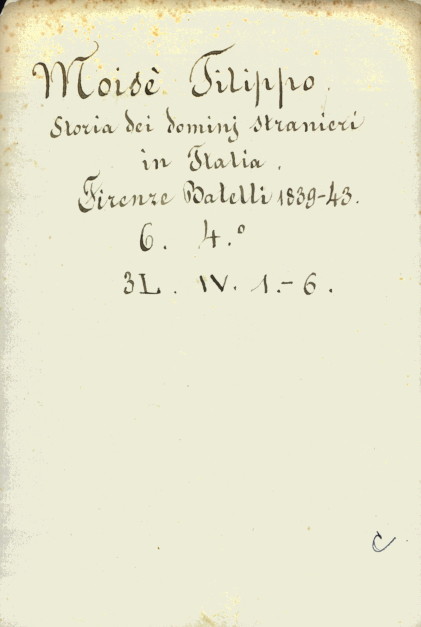 Moisè Filippo.
Storia dei dominj stranieri
in Italia.
Firenze Batelli 1839-43.
6. 4.°
3L. IV. 1.- 6.
C